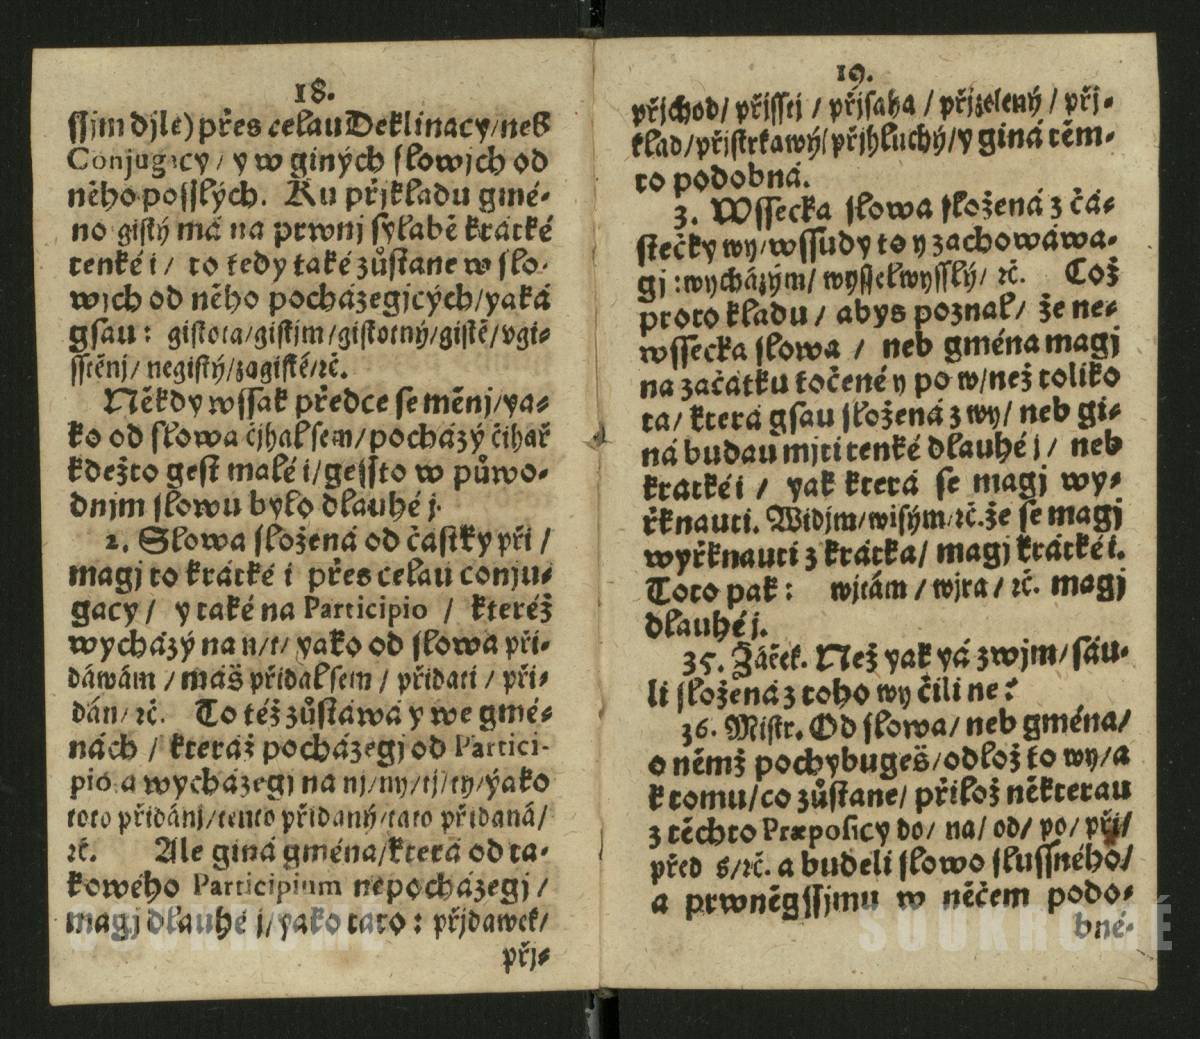 18.
ssjm djle) přes celau Deklinacy/neb
Conjugacy / y w giných slowjch od
něho possslých. Ku přjkladu gmé-
no gistý má na prwnj sylabě krátké
tenké i / to tedy také zůstane w slo-
wjch od něho pocházegjcých/yaká
gsau: gistota/gistjm/gistotný/gistě/vgi-
sstěnj/ negistý/zagisté/rč.
Někdy wssak předce se měnj/ya-
ko od slowa čjhal sem/pocházý čihař
kdežto gest malé i/gessto w půwo-
dnjm slowu bylo dlauhé j.
2. Slowa složená od částky při /
magj to krátké i přes celau conju-
gacy / y také na Participio / kteréž
wycházý na n/t/ yako od slowa při-
dáwám / máš přidal sem / přidati / při-
dán/ rč. To též zůstáwá y we gmé-
nách / kteráž pocházegj od Partici-
pio a wycházegj na nj/ny/tj/ty/yako
toto přidánj/tento přidaný/tato přidaná/
rč. Ale giná gména/která od ta-
kowého Participium nepocházegj /
magj dlauhé j/yako tato: přjdawek/
přj-
19.
přjchod/ přjssej / přjsaha / přjzelený / přj-
klad/přjstrkawý/přjhluchý/y giná těm-
to podobná.
3. Wssecka slowa složená z čá-
stečky wy/wssudy to y zachowáwa-
gj: wycházým/ wyssel wysslý/ rč. Což
proto kladu / abys poznal/ že ne-
wssecka slowa / neb gména magj
na začátku točené y po w/než toliko
ta/ která gsau složená z wy/ neb gi-
ná budau mjti tenké dlauhé j / neb
krátké i / yak která se magj wy-
řknauti. Widjm/wisým/rč. že se magj
wyřknauti z krátka/ magj krátké i.
Toto pak: wjtám / wjra / rč. magj
dlauhé j.
35. Žáček. Než yak yá zwjm/sáu-
li složená z toho wy čili ne?
36. Mistr. Od slowa/ neb gména/
o němž pochybugeš/odlož to wy/a
k tomu/co zůstane/ přilož některau
z těchto Præposicy do/ na/ od/ po/ při/
před s/rč. a budeli slowo slussného/
a prwněgssjmu w něčem podo-
bné-
SOUKROMÉ